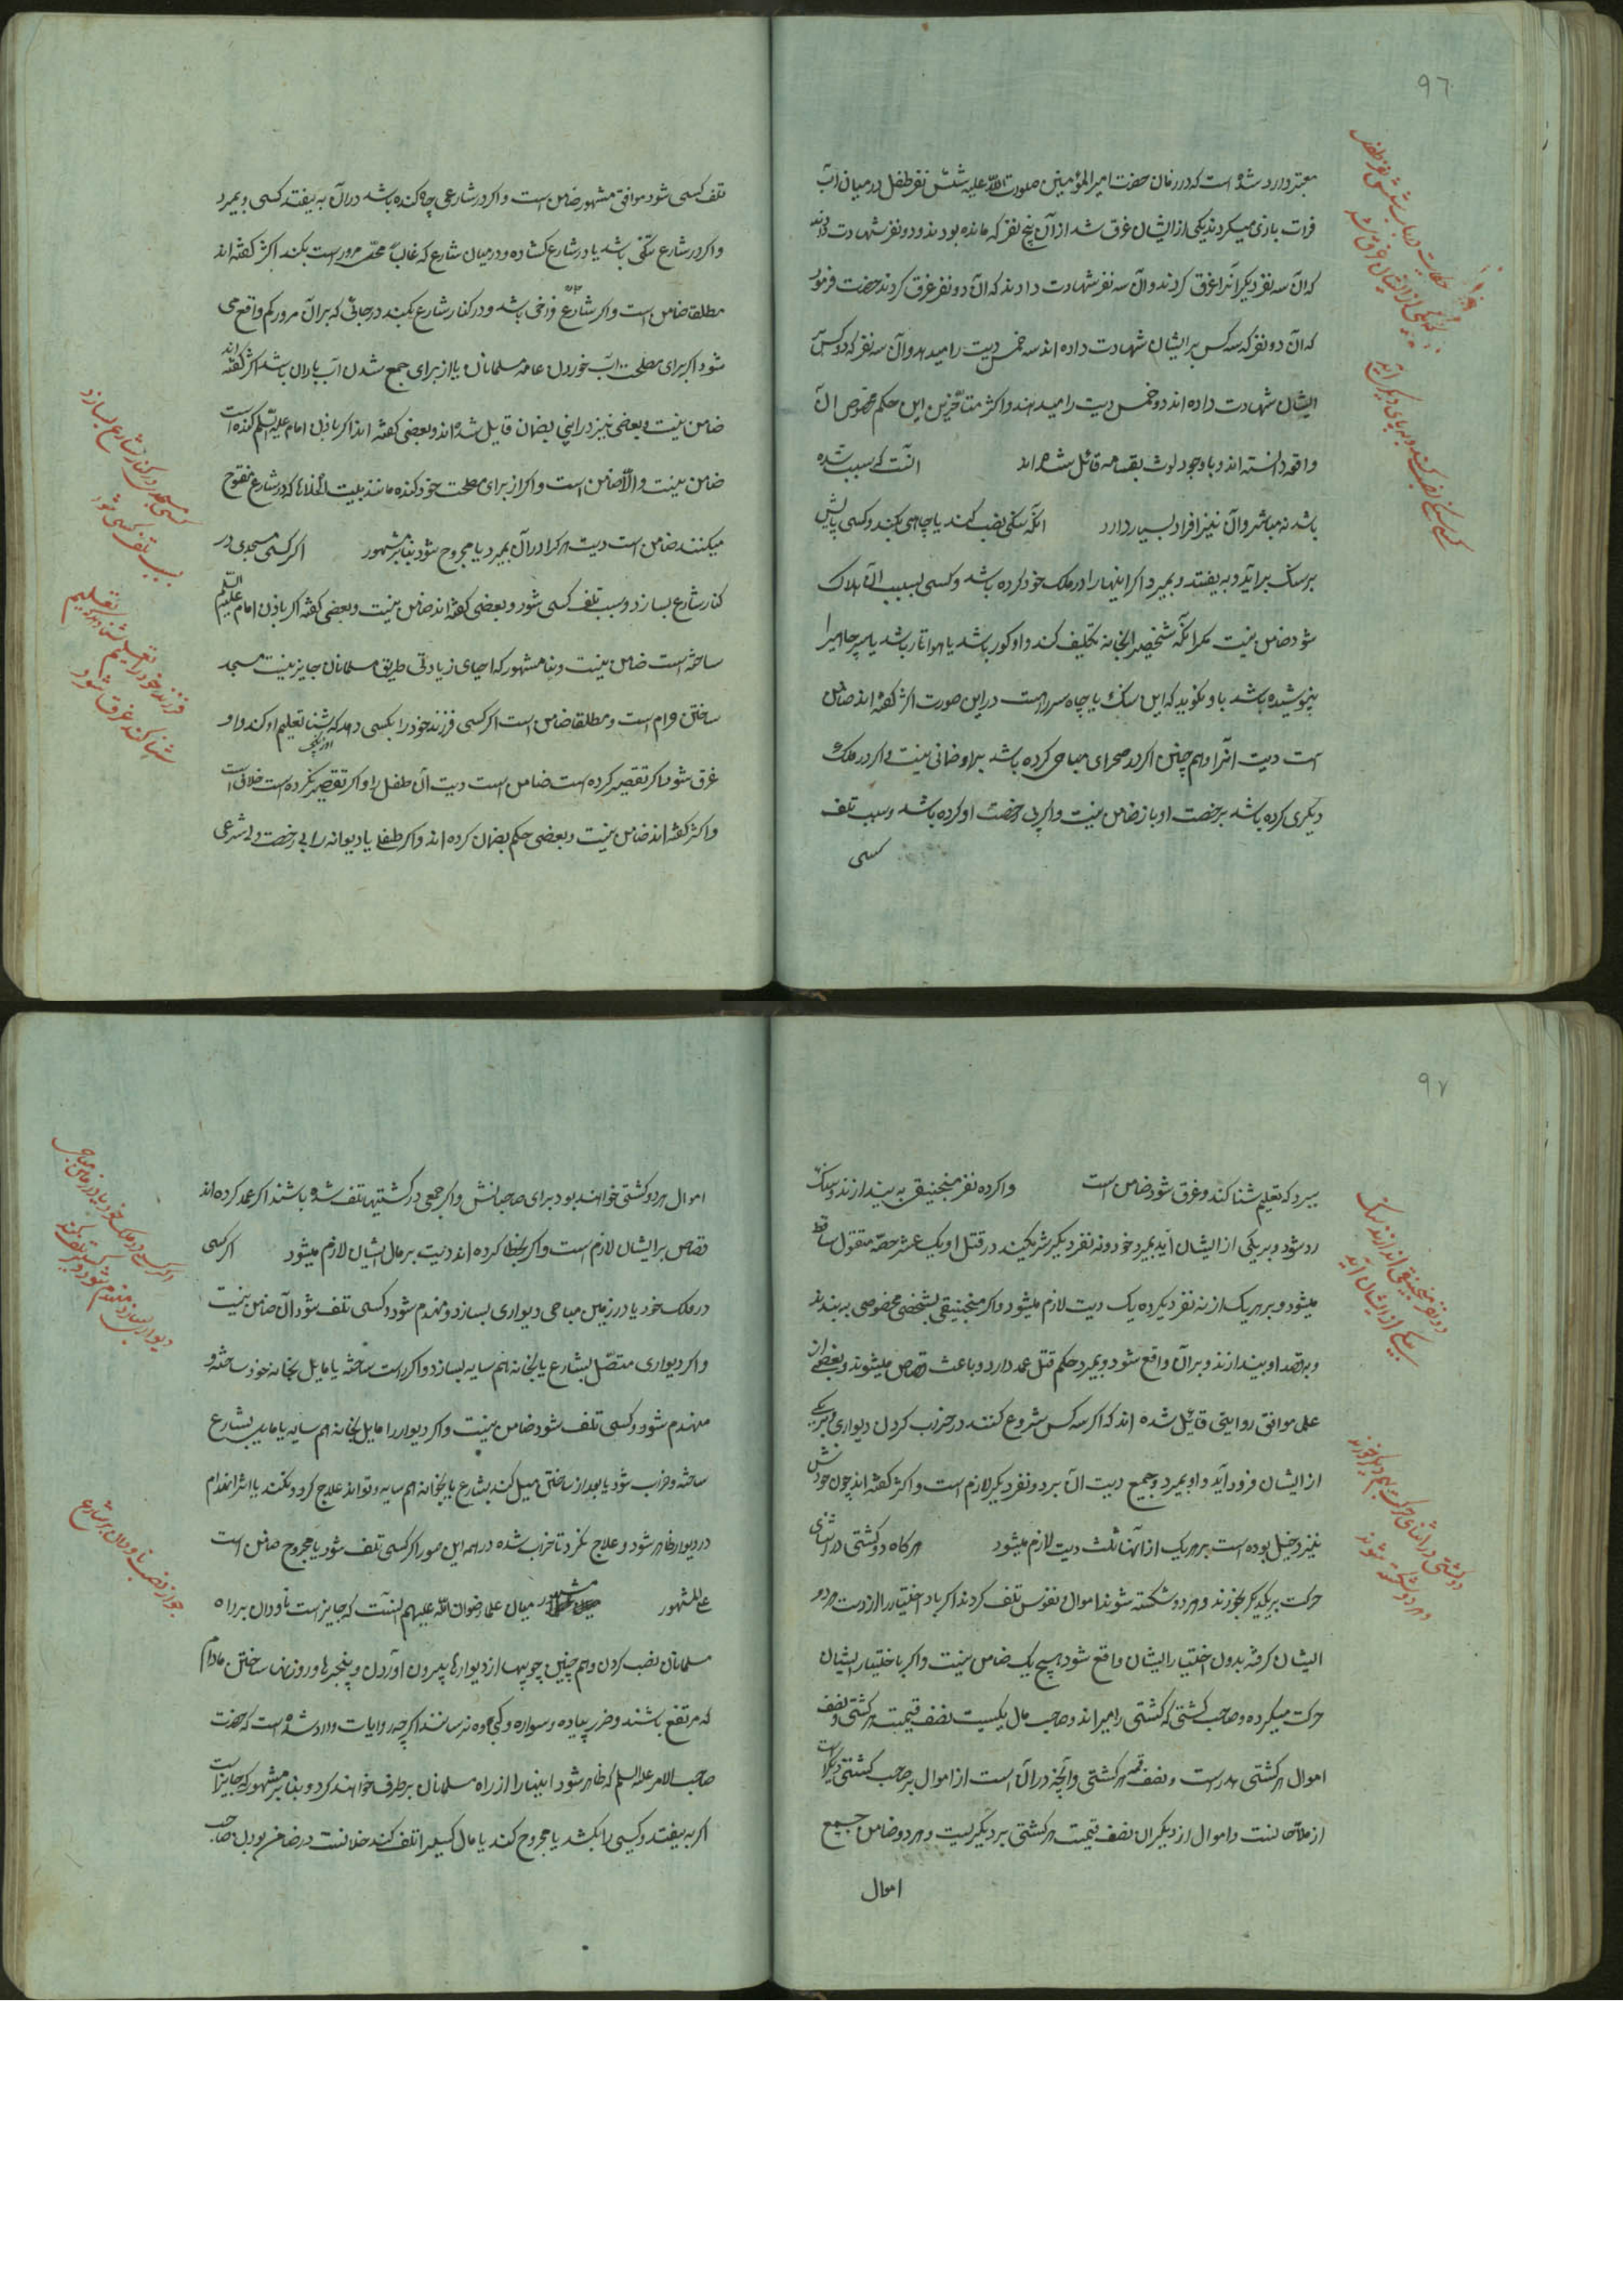 ٩٦
معتبر وارد شده است که در زمان حضرت امیر المؤمنین صلوات الله علیه شش نفر طفل در میان آب
فرات بازی میکردند یکی از ایشان غرق شد از آن پنج نفر که مانده بودند دو نفر شهادت دادند
که آن سه نفر دیکر آنرا غرق کردند و آن سه نفر شهادت دادند که آن دو نفر غرق کردند حضرت فرمود
که آن دو نفر که سه کس بر ایشان شهادت داده اند سه خمس دیت را میدهند و آن سه نفر که دو کس بر
ایشان شهادت داده اند دو خمس دیت را میدهند و اکثر متأخرین این حکم مخصوص آن
واقعه دانسته اند و با وجود لوث بقسامه قائل شده اند آنست که سبب شده
باشد نه مباشر و آن نیز افراد بسیار دارد آنکه سنکی نصب کند یا چاهی بکند و کسی پایش
بر سنک برآید و به بیفتد و بمیرد اکر اینها را در ملک خود کرده باشد و کسی بسبب آن هلاک
شود ضامن نیست مکر آنکه شخصی را بخانه تکلیف کند و او کور باشد یا هوا تار باشد یا سر چاه را
پوشیده باشد و باو نکوید که این سنک یا چاه سر راهست در این صورت اکثر کفته اند ضامن
است دیت آنرا و هم چنین اکر در صحرای مباحی کرده باشد بر او ضمانی نیست و اکر در ملک
دیکری کرده باشد برخصت او باز ضامن نیست و اکر بی رخصت او کرده باشد و سبب تلف
کسی
حکایت در باب شش نفر طفل
که یکی از ایشان غرق شد
کسی سنکی نصب کند و به پای دیکری آید
تلف کسی شود موافق مشهور ضامن است و اکر در شارعی چاه کنده باشد در آن به بیفتد کسی و بمیرد
و اکر در شارع تنکی باشد یا در شارع کشاده و در میان شارع که غالباً محل مرور است بکند اکثر کفته اند
مطلقا ضامن است و اکر شارع فراخی باشد و در کنار شارع بکند در جائی که بر آن مرور کم واقع می
شود اکر برای مصلحت آب خوردن عامه مسلمانان یا از برای جمع شدن آب باران باشد اکثر کفته اند
ضامن نیست و بعضی نیز در اینی بضمان قایل شده اند و بعضی کفته اند اکر باذن امام علیه السلم کنده است
ضامن نیست و الا ضامن است و اکر از برای مصلحت خود کنده مانند بیت الخلاها که در شارع مفتوح
میکنند ضامن است دیت هر کرا در آن بمیرد یا مجروح شود بنابر مشهور اکر کسی مسجدی در
کنار شارع بسازد و سبب تلف کسی شود و بعضی کفته اند ضامن نیست و بعضی کفته اکر باذن امام علیه السلم
ساخته است ضامن نیست و بنا مشهور که احیای زیادتی طریق مسلمانان جایز نیست مسجد
ساختن حرام است و مطلقا ضامن است اکر کسی فرزند خود را بکسی دهد که شنا تعلیم او کند و او
غرق شود اکر تقصیر کرده است ضامن است دیت آن طفل را و اکر تقصیر نکرده است خلافی است
و اکثر کفته اند ضامن نیست و بعضی حکم بضمان کرده اند و اکر طفلی یا دیوانه را بی رخصت ولی شرعی
کسی مسجدی در کنار شارع بسازد
سبب تلف کسی شود
فرزند خود را تعلیم
شنا کند غرق شود
٩٧
ببرد که تعلیم شنا کند و غرق شود ضامن است و اکر ده نفر منجنیقی به بیندازند و سنک
رد شود و بر یکی از ایشان آید بمیرد خود و نه نفر دیکر شریکند در قتل او یک عشر حصه مقتول ساقط
میشود و بر هر یک از نه نفر دیکر ده یک دیت لازم میشود و اکر منجنیقی بشخصی مخصوصی به بندند
و بقصد او بیندازند و بر آن واقع شود و بمیرد حکم قتل عمد دارد و باعث قصاص میشوند و بعضی از
علما موافق روایتی قائل شده اند که اکر سه کس شروع کنند در خراب کردن دیواری و بر یکی
از ایشان فرود آید و او بمیرد و جمیع دیت آن بر دو نفر دیکر لازم است و اکثر کفته اند چون خودش
نیز دخیل بوده است بر هر یک از آنها ثلث دیت لازم میشود هر کاه دو کشتی در اثنای
حرکت بر یکدیکر بخورند و هر دو شکسته شوند اموال و نفوس تلف کردند اکر باد اختیار را از دست هر دو
ایشان کرفته بدون اختیار ایشان واقع شود هیچ یک ضامن نیست و اکر با ختیار ایشان
حرکت میکرده و صاحب کشتی که کشتی را میراند و صاحب مال یکیست نصف قیمت هر کشتی و نصف
اموال هر کشتی هدر است و نصف قیمت هر کشتی و آنچه در آن است از اموال بر صاحب کشتی دیکر است
از ملاحانست و اموال از دیکران نصف قیمت هر کشتی بر دیکریست و هر دو ضامن جمیع
اموال
ده نفر منجنیقی اندازند سنک
بر یکی از ایشان آید
دو کشتی در اثنای حرکت بهم دیکر خورند
و هر دو شکسته شوند
اموال هر دو کشتی خواهند بود برای صاحبانش و اکر جمعی در کشتیها تلف شده باشند اکر عمد کرده اند
قصاص بر ایشان لازم است و اکر بخطا کرده اند دیت بر مال ایشان لازم میشود اکر کسی
در ملک خود یا در زمین مباحی دیواری بسازد و منهدم شود و کسی تلف شود آن ضامن نیست
و اکر دیواری متصل بشارع یا بخانه هم سایه بسازد و اکر راست ساخته یا مایل بخانه خود ساخته و
منهدم شود و کسی تلف شود ضامن نیست و اکر دیوار را مایل بخانه هم سایه یا مایل بشارع
ساخته و خراب شود یا بعد از ساختن میل کند بشارع یا بخانه هم سایه و تواند علاج کرد و نکند یا اثر انهدام
در دیوار ظاهر شود و علاج نکرد تا خراب شده در همه این صور اکر کسی تلف شود یا مجروح ضامن است
علی المشهور مشهور میان علما رضوان الله علیهم آنست که جایز است ناودان بر راه
مسلمانان نصب کردن و هم چنین چوبها از دیوارها بیرون آوردن و پنجرها و روزنها ساختن مادام
که مرتفع باشند و ضرر پیاده و سواره و کجاوه نرسانند اکر چه در روایات وارد شده است که حضرت
صاحب الامر علیه السلم که ظاهر شود اینها را از راه مسلمانان برطرف خواهند کرد و بنابر مشهور که جایز است
اکر به بیفتد و کسی را بکشد یا مجروح کند یا مال کسی را تلف کند خلافست در ضامن بودن صاحب
اکر کسی در ملک خود یا در زمین مباحی
دیوار بسازد منهدم شود و کسی تلف شود
جواز نصب ناودان بر شارع